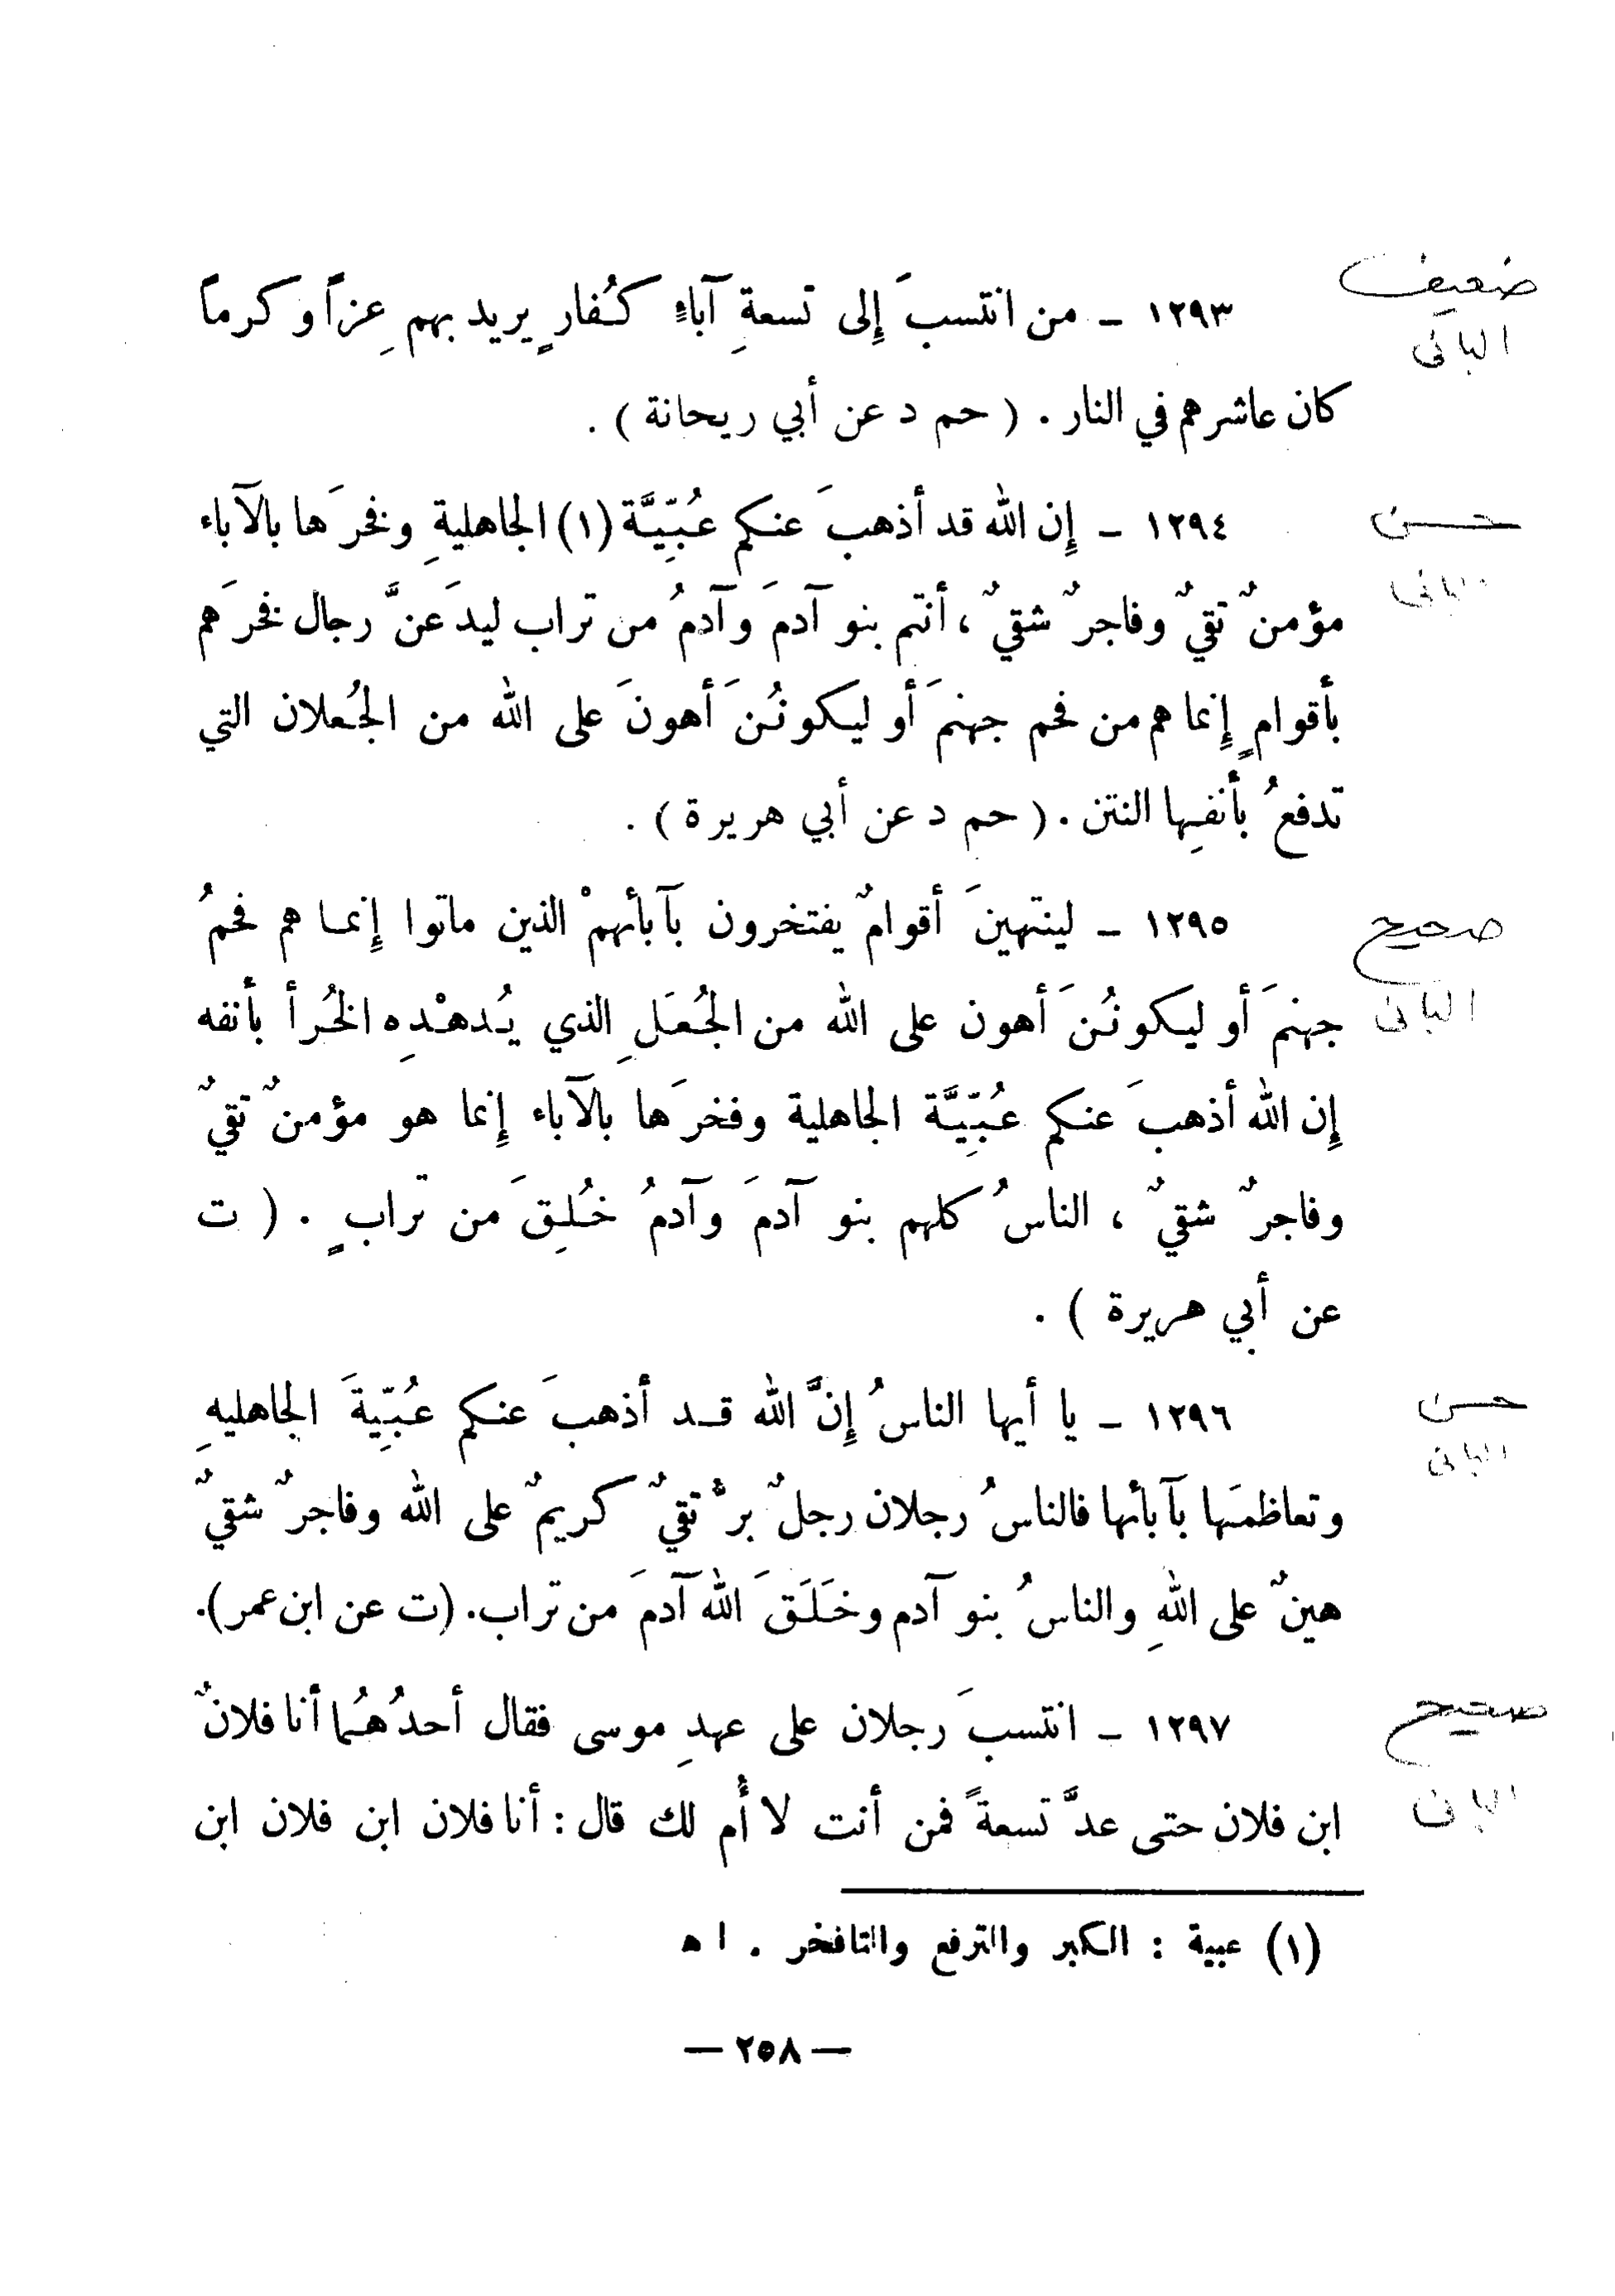 ضعيف
١٢٩٣ ــ من انتسبَ إِلى تسعةِ آباءٍ كُفارٍ يريد بهم عِزاً وكرماً
البانى
كان عاشرهم في النار . ( حم د عن أبي ريحانة ) .
حسن
١٢٩٤ ــ إِن الله قد أذهبَ عنكم عُبِّيَّة (١) الجاهليةِ وفخرَها بالآباء
البانى
مؤمنٌ تقيٌ وفاجرٌ شقيٌ ، أنتم بنو آدمَ وآدمُ من تراب ليدَعنَّ رجال فخرَهم
بأقوامٍ إِنما هم من فحم جهنمَ أو ليكونُنَ أهونَ على الله من الجُعلان التي
تدفعُ بأنفِها النتن . ( حم د عن أبي هريرة ) .
صحيح
١٢٩٥ ــ لينتهينَ أقوامٌ يفتخرون بآبأئهمْ الذين ماتوا إِنما هم فحمُ
البانى
جهنمَ أو ليكونُنَ أهون على الله من الجُعَلِ الذي يُدهْدِه الخُرأ بأنفه
إِن الله أذهبَ عنكم عُبِّيَّة الجاهلية وفخرَها بالآباء إِنما هو مؤمنٌ تقيٌ
وفاجرٌ شقيٌ ، الناسُ كلهم بنو آدمَ وآدمُ خُلِقَ من ترابٍ . ( ت
عن أبي هريرة ) .
حسن
١٢٩٦ ــ يا أيها الناسُ إِنَّ الله قد أذهبَ عنكم عُبِّيةَ الجاهليهِ
البانى
وتعاظمَها بآبأئها فالناسُ رجلان رجلٌ برٌ تقيٌ كريمٌ على الله وفاجرٌ شقيٌ
هينٌ على اللهِ والناسُ بنو آدم وخَلَقَ الله آدمَ من تراب. (ت عن ابن عمر).
صحيح
١٢٩٧ ــ انتسبَ رجلان على عهدِ موسى فقال أحدُهُما أنا فلانٌ
البانى
ابن فلان حتى عدَّ تسعةً فمن أنت لا أُم لك قال : أنا فلان ابن فلان ابن
(١) عبية : الكبر والترفع والتافخر . ا ه
— ٢٥٨ —